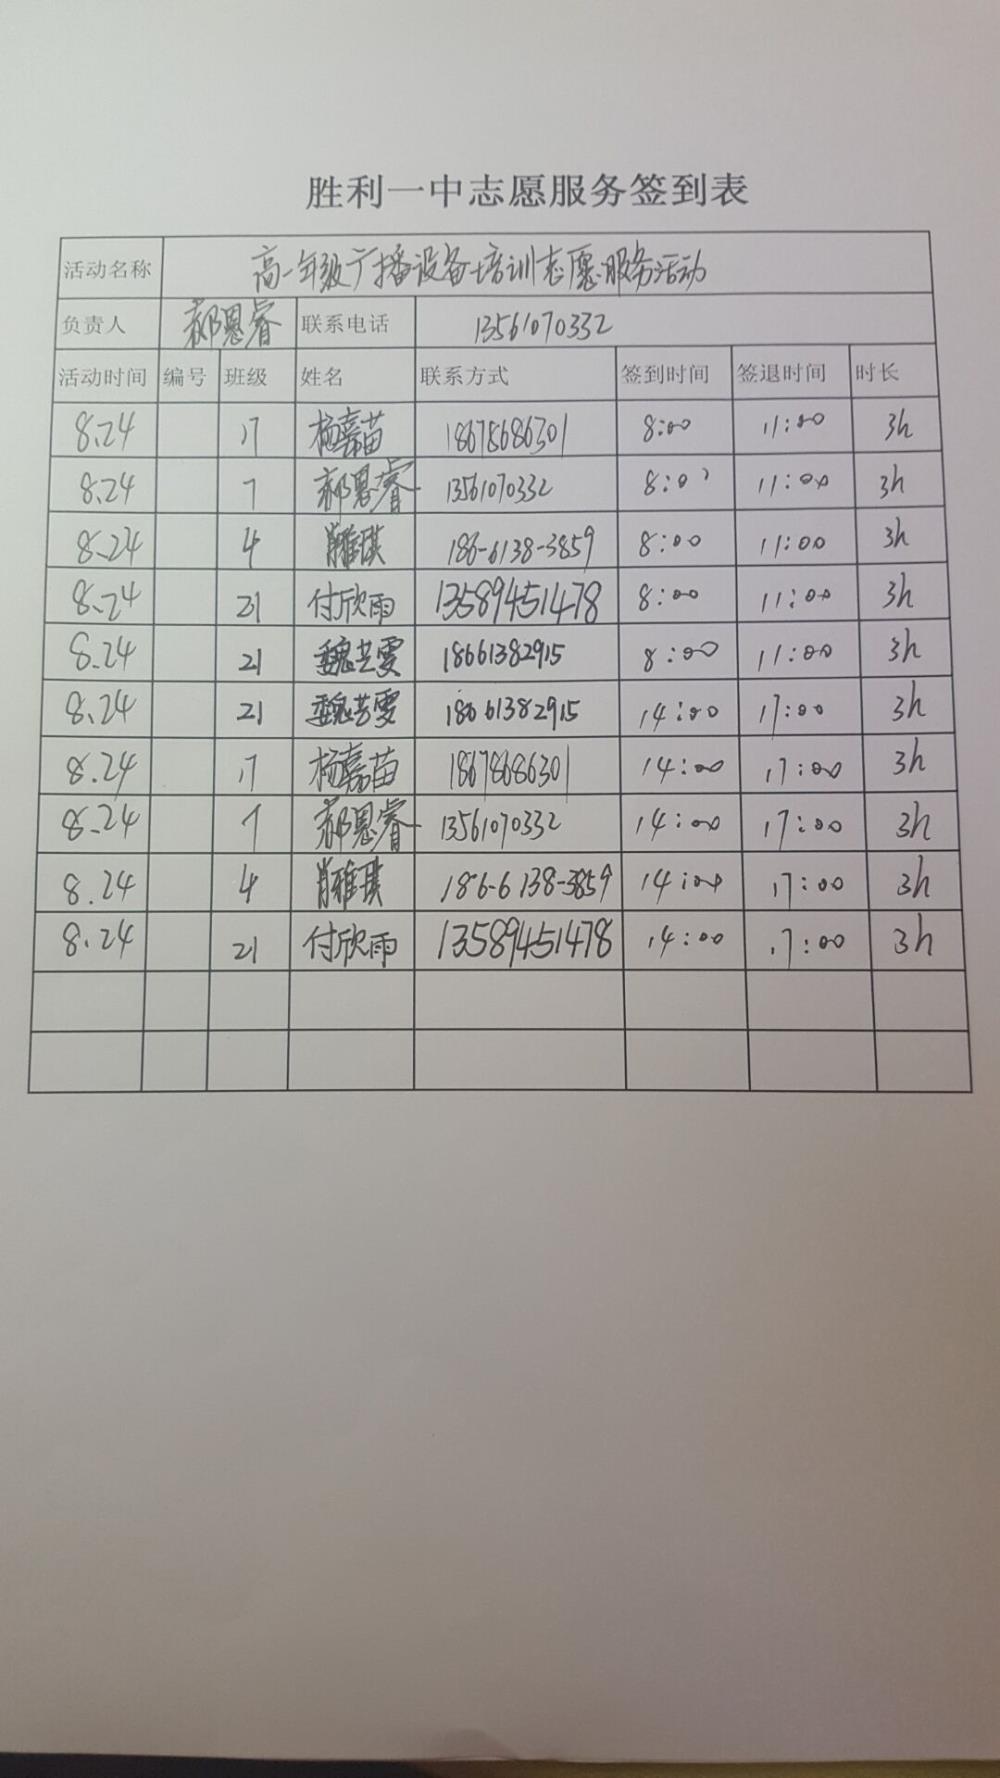 胜利一中志愿服务签到表
活动名称 高一年级广播设备培训志愿服务活动
负责人 郝恩睿 联系电话 13561070332
活动时间 编号 班级 姓名 联系方式 签到时间 签退时间 时长
8.24 17 杨嘉苗 18678686301 8:00 11:00 3h
8.24 7 郝恩睿 13561070332 8:00 11:00 3h
8.24 4 肖雅琪 186-6138-3859 8:00 11:00 3h
8.24 21 付欣雨 13589451478 8:00 11:00 3h
8.24 21 魏芸雯 18661382915 8:00 11:00 3h
8.24 21 魏芸雯 18661382915 14:00 17:00 3h
8.24 17 杨嘉苗 18678686301 14:00 17:00 3h
8.24 7 郝恩睿 13561070332 14:00 17:00 3h
8.24 4 肖雅琪 186-6138-3859 14:00 17:00 3h
8.24 21 付欣雨 13589451478 14:00 17:00 3h